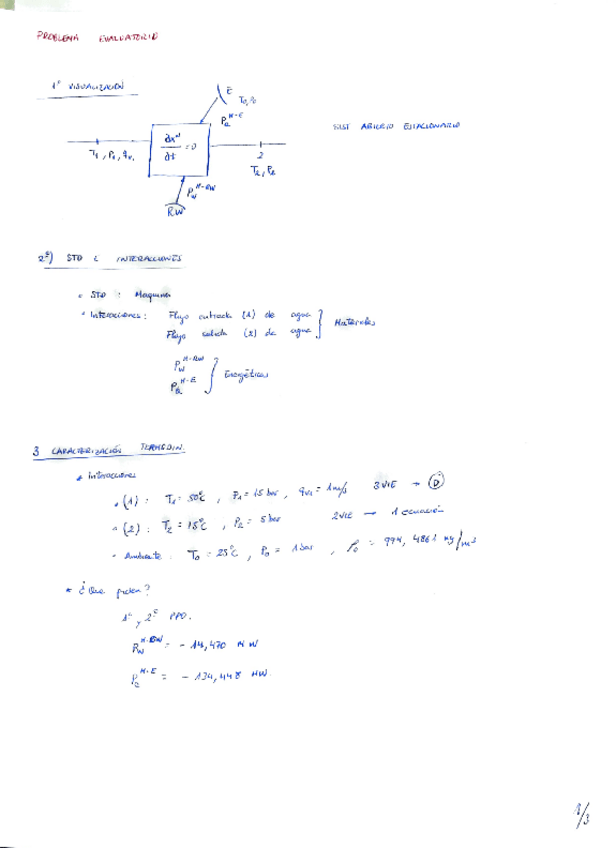 PROBLEMA EVALUATORIO
1º VISUALIZACIÓN
E
T₀, P₀
P_Q^{M-E}
SIST ABIERTO ESTACIONARIO
∂x^{st}/∂t = 0
T₁, P₁, q_{v₁}
2
T₂, P₂
P_W^{M-RW}
RW
2º) STD e INTERACCIONES
• STD : Maquina
• Interacciones: Flujo entrada (1) de agua
Flujo salida (2) de agua } Materiales
P_W^{M-RW}
P_Q^{M-E} } Energéticas
3 CARACTERIZACIÓN TERMODIN.
* Interacciones
• (1) : T₁ = 50ºC , P₁ = 15 bar , q_{v1} = 1 m³/s 3VIE → D
• (2) : T₂ = 15ºC , P₂ = 5 bar 2VIE → 1 ecuación
• Ambiente : T₀ = 25ºC , P₀ = 1 bar , ρ₀ = 994,4861 kg/m³
* ¿Que piden?
1º y 2º PPO.
P_W^{M-RW} = - 14,470 MW
P_Q^{M-E} = - 134,448 MW
1/3